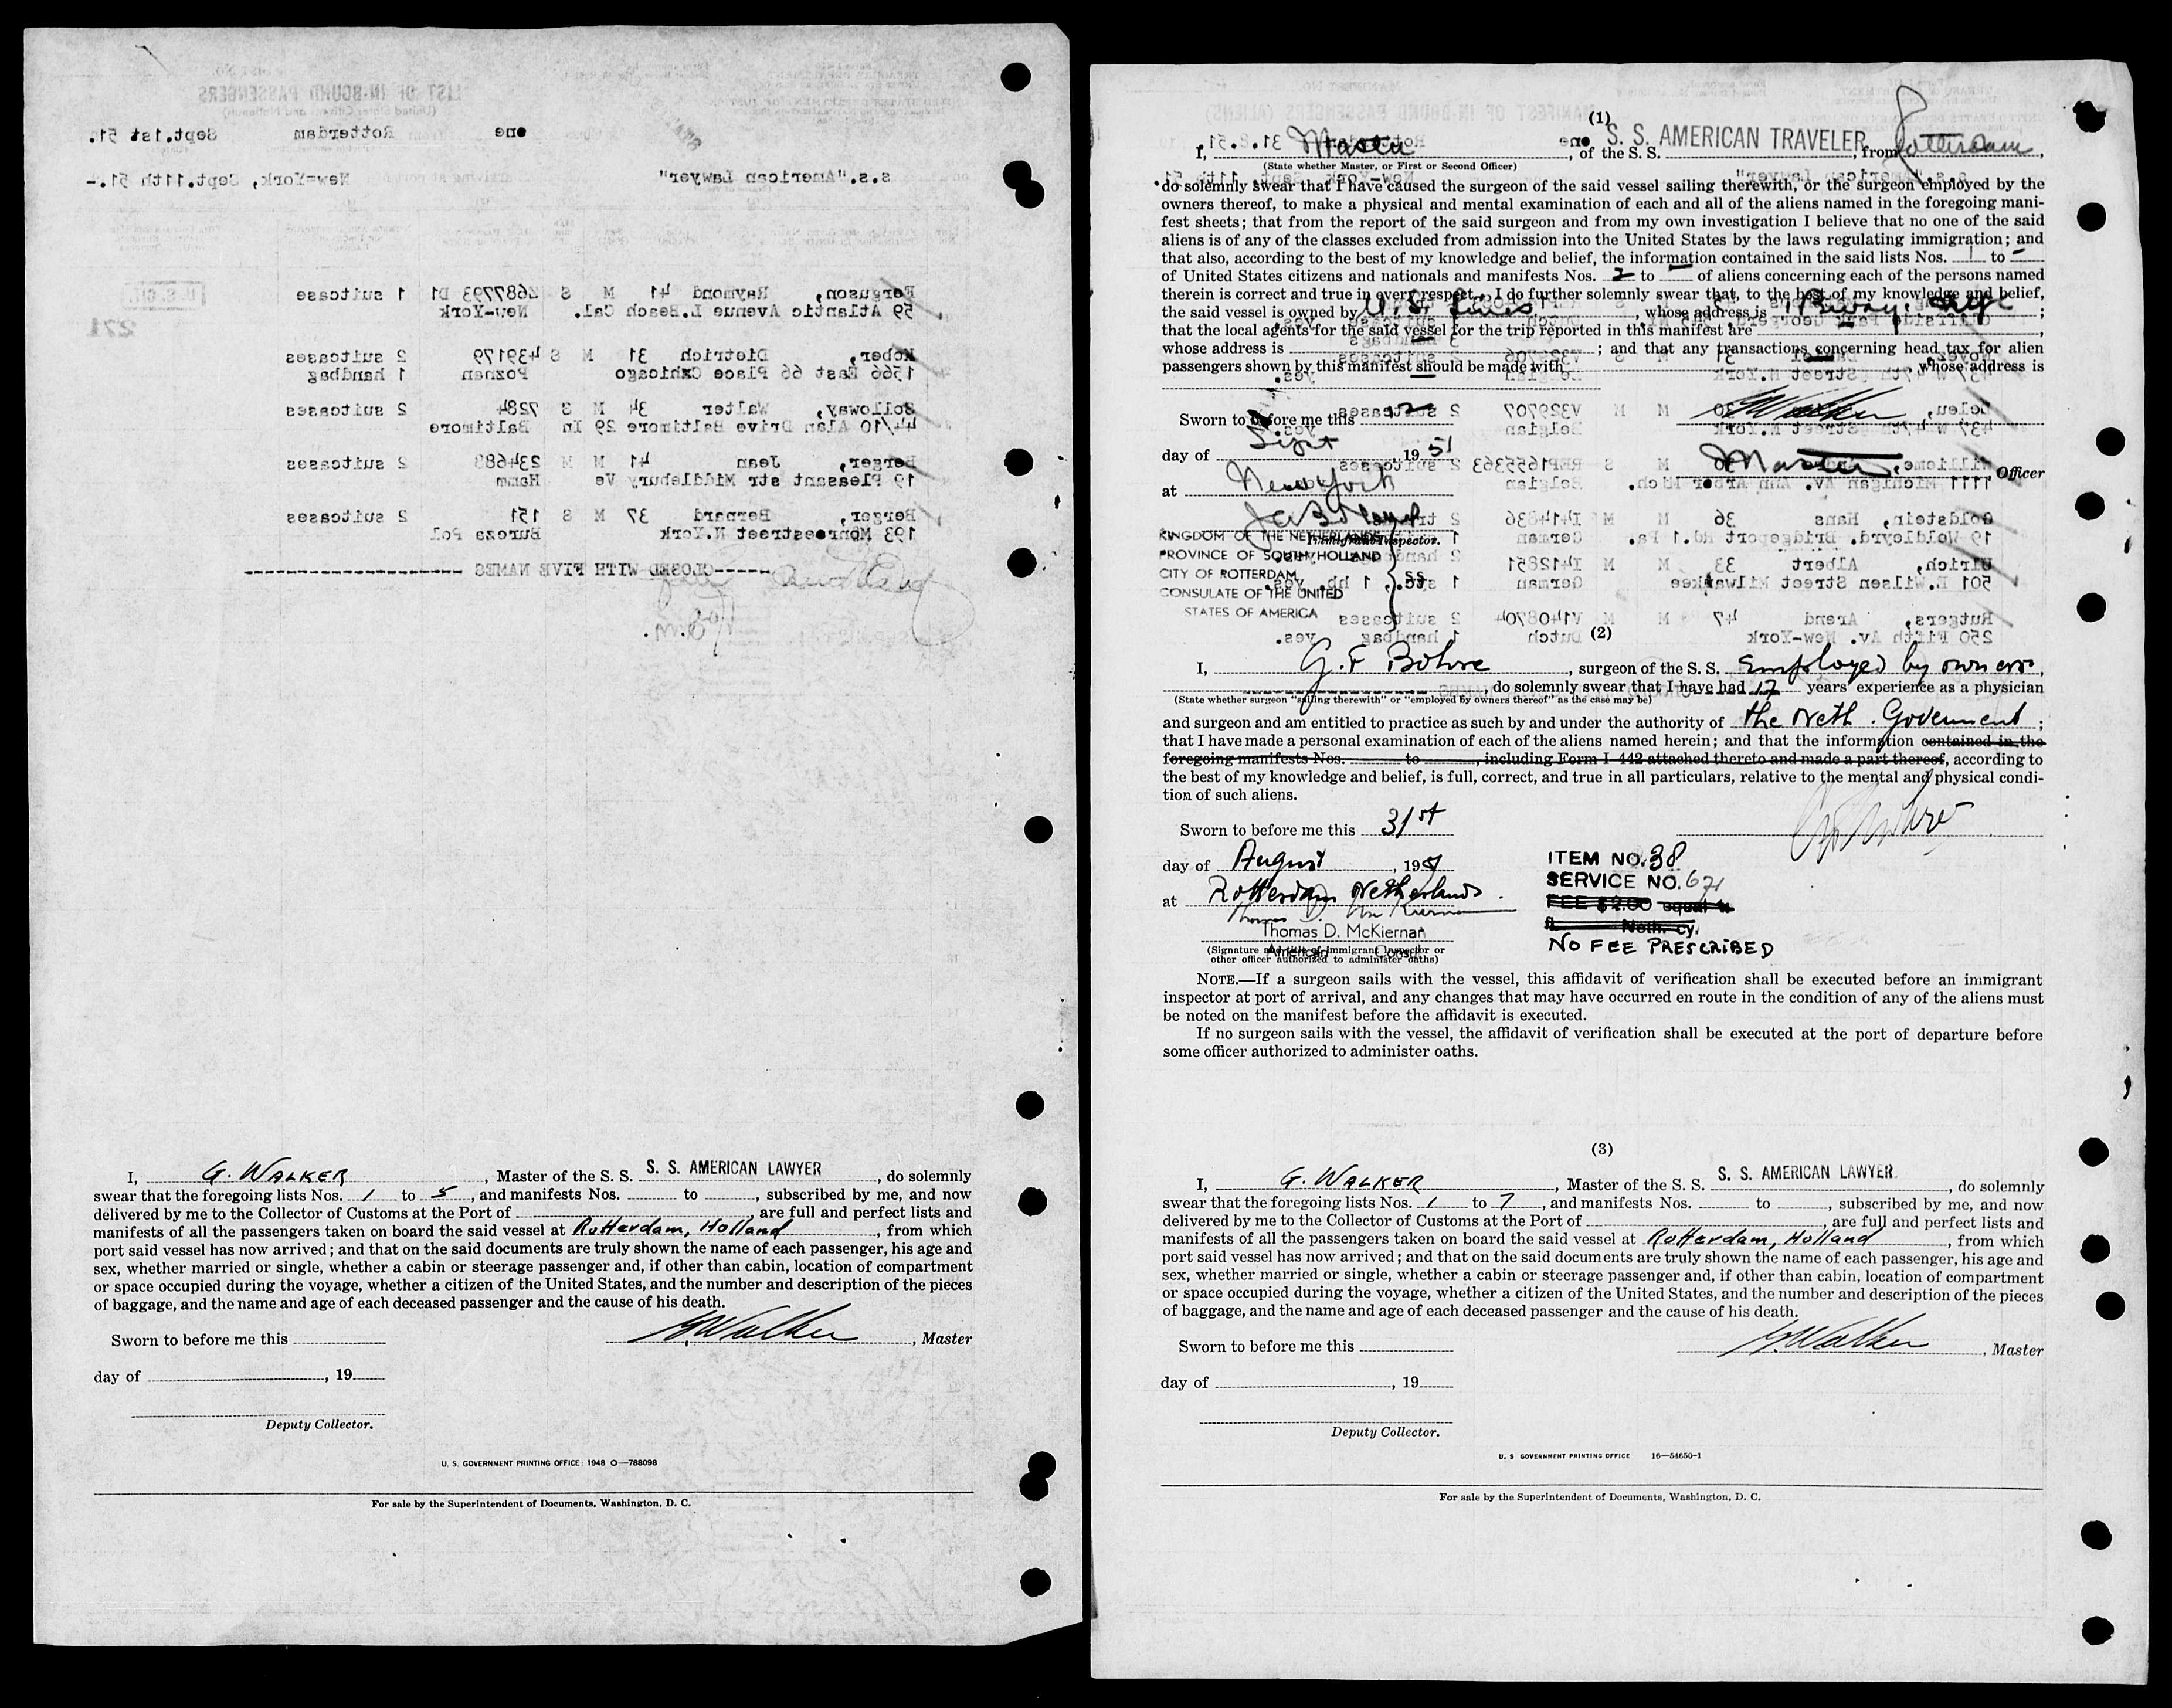 LIST OF IN-BOUND PASSENGERS
(United States Citizens and Nationals)
one Rotterdam Sept.1st 51.
s.s."American Lawyer" New=York, Sept.11th 51.-
Ferguson, Raymond 41 M S Z687793 D1 1 suitcase
59 Atlantic Avenue L.Beach Cal. New-York
U.S.CIT.
271
Kober, Dietrich 31 M S 439179 2 suitcases
1566 East 66 Place Cxhicago Poznan 1 handbag
Solloway, Walter 34 M S 7284 2 suitcases
44/10 Alan Drive Baltimore 29 In Baltimore
Berger, Jean 41 M M 234688 2 suitcases
19 Pleasant str Middlebury Ve Hamm
Berger, Bernard 37 M S 151 2 suitcases
193 Monroestreet N.York Burcza Pol
-----CLOSED WITH FIVE NAMES -----------------
I, G. WALKER, Master of the S. S. S. S. AMERICAN LAWYER, do solemnly
swear that the foregoing lists Nos. 1 to 5, and manifests Nos. to , subscribed by me, and now
delivered by me to the Collector of Customs at the Port of , are full and perfect lists and
manifests of all the passengers taken on board the said vessel at Rotterdam, Holland, from which
port said vessel has now arrived; and that on the said documents are truly shown the name of each passenger, his age and
sex, whether married or single, whether a cabin or steerage passenger and, if other than cabin, location of compartment
or space occupied during the voyage, whether a citizen of the United States, and the number and description of the pieces
of baggage, and the name and age of each deceased passenger and the cause of his death.
Sworn to before me this
G Walker, Master
day of , 19
Deputy Collector.
U. S. GOVERNMENT PRINTING OFFICE: 1948 O—788098
For sale by the Superintendent of Documents, Washington, D. C.
MANIFEST OF IN-BOUND PASSENGERS (ALIENS)
(1)
I, Master, of the S. S. S. S. AMERICAN TRAVELER, from Rotterdam,
(State whether Master, or First or Second Officer)
do solemnly swear that I have caused the surgeon of the said vessel sailing therewith, or the surgeon employed by the
owners thereof, to make a physical and mental examination of each and all of the aliens named in the foregoing mani-
fest sheets; that from the report of the said surgeon and from my own investigation I believe that no one of the said
aliens is of any of the classes excluded from admission into the United States by the laws regulating immigration; and
that also, according to the best of my knowledge and belief, the information contained in the said lists Nos. 1 to –
of United States citizens and nationals and manifests Nos. 2 to – of aliens concerning each of the persons named
therein is correct and true in every respect. I do further solemnly swear that, to the best of my knowledge and belief,
the said vessel is owned by U.S. Lines, whose address is 1 Bway, ;
that the local agents for the said vessel for the trip reported in this manifest are ,
whose address is ; and that any transactions concerning head tax for alien
passengers shown by this manifest should be made with , whose address is
Sworn to before me this 12
G Walker
day of Sept, 1951
Master Officer
at New York
Immigrant Inspector.
KINGDOM OF THE NETHERLANDS
PROVINCE OF SOUTH HOLLAND
CITY OF ROTTERDAM
CONSULATE OF THE UNITED
STATES OF AMERICA
SS
437 W 47th Street N.York Belgian
Goldstein, Hans 36 M M I414636
19 Woldloyrd. Bridgeport Rd.1 Pa. German
Ulrich, Albert 33 M M I412851
501 E.Wilsen Street Milwaukee German
Rutgers, Arend 47 M M V1408704 2 suitcases
250 Fifth Av. New-York Dutch 1 handbag yes.
(2)
I, G. F Bohre, surgeon of the S. S. Employed by owners,
, do solemnly swear that I have had 17 years' experience as a physician
(State whether surgeon "sailing therewith" or "employed by owners thereof" as the case may be)
and surgeon and am entitled to practice as such by and under the authority of the Neth. Government;
that I have made a personal examination of each of the aliens named herein; and that the information contained in the
foregoing manifests Nos. to , including Form I-442 attached thereto and made a part thereof, according to
the best of my knowledge and belief, is full, correct, and true in all particulars, relative to the mental and physical condi-
tion of such aliens.
Sworn to before me this 31st
day of August, 1951
at Rotterdam Netherlands.
Thomas D. McKiernan
Thomas D. McKiernan
American Consul
(Signature and title of Immigrant Inspector or
other officer authorized to administer oaths)
ITEM NO. 38
SERVICE NO. 671
FEE $2.00 equal to
fl. Neth. cy.
NO FEE PRESCRIBED
NOTE.—If a surgeon sails with the vessel, this affidavit of verification shall be executed before an immigrant
inspector at port of arrival, and any changes that may have occurred en route in the condition of any of the aliens must
be noted on the manifest before the affidavit is executed.
If no surgeon sails with the vessel, the affidavit of verification shall be executed at the port of departure before
some officer authorized to administer oaths.
(3)
I, G. WALKER, Master of the S. S. S. S. AMERICAN LAWYER, do solemnly
swear that the foregoing lists Nos. 1 to 7, and manifests Nos. to , subscribed by me, and now
delivered by me to the Collector of Customs at the Port of , are full and perfect lists and
manifests of all the passengers taken on board the said vessel at Rotterdam, Holland, from which
port said vessel has now arrived; and that on the said documents are truly shown the name of each passenger, his age and
sex, whether married or single, whether a cabin or steerage passenger and, if other than cabin, location of compartment
or space occupied during the voyage, whether a citizen of the United States, and the number and description of the pieces
of baggage, and the name and age of each deceased passenger and the cause of his death.
Sworn to before me this
G. Walker, Master
day of , 19
Deputy Collector.
U. S GOVERNMENT PRINTING OFFICE 16—54650-1
For sale by the Superintendent of Documents, Washington, D. C.